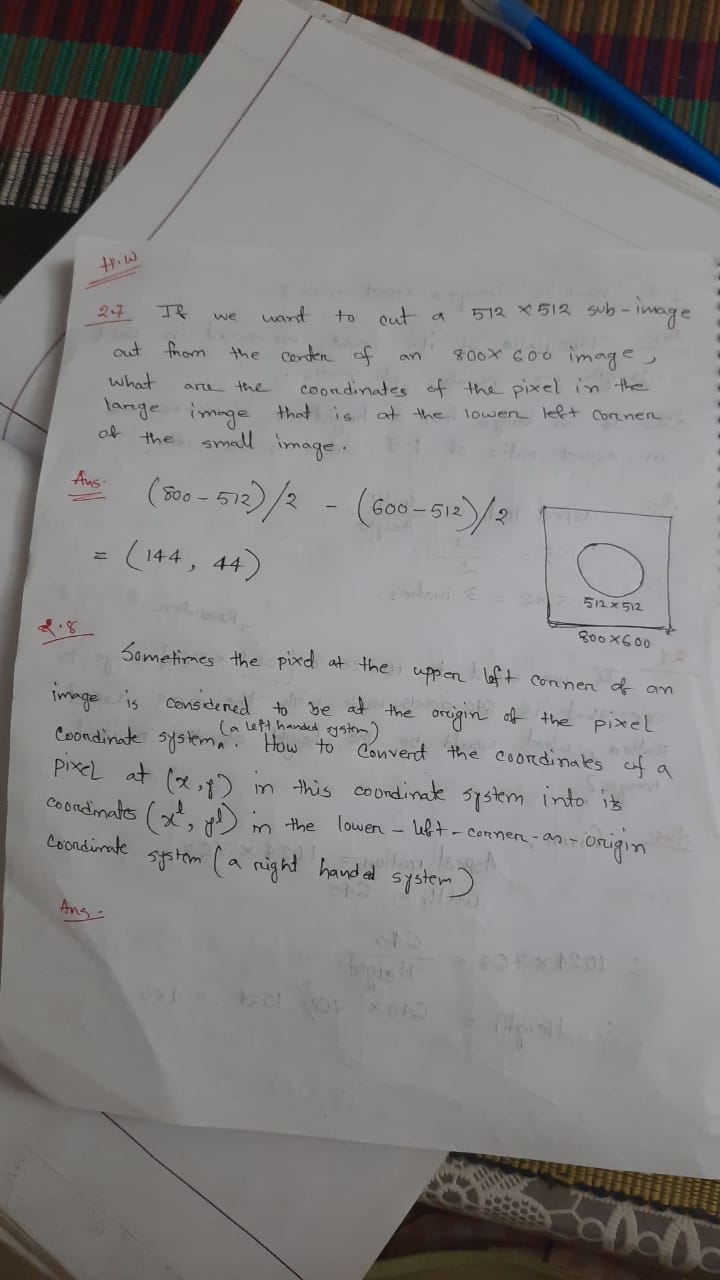 H.W
2.7 If we want to cut a 512 × 512 sub-image
out from the center of an 800 × 600 image,
what are the coordinates of the pixel in the
large image that is at the lower left corner
of the small image.
Ans. (800 - 512)/2 - (600-512)/2
= (144, 44)
512 × 512
800 × 600
2.8
Sometimes the pixel at the upper left corner of an
image is considered to be at the origin of the pixel
(a left handed system)
coordinate system. How to convert the coordinates of a
pixel at (x, y) in this coordinate system into its
coordinates (x', y') in the lower-left-corner-as-origin
coordinate system (a right handed system)
Ans-